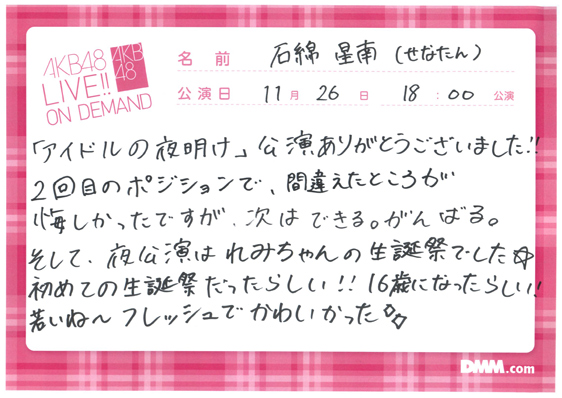 AKB48
LIVE!!
ON DEMAND
AKB
48
名 前 石綿 星南 (せなたん)
公演日 11月 26日 18:00 公演
「アイドルの夜明け」公演ありがとうございました!!
2回目のポジションで、間違えたところが
悔しかったですが、次はできる。がんばる。
そして、夜公演はれみちゃんの生誕祭でした☆
初めての生誕祭だったらしい!! 16歳になったらしい!
若いね〜 フレッシュでかわいかった
DMM.com